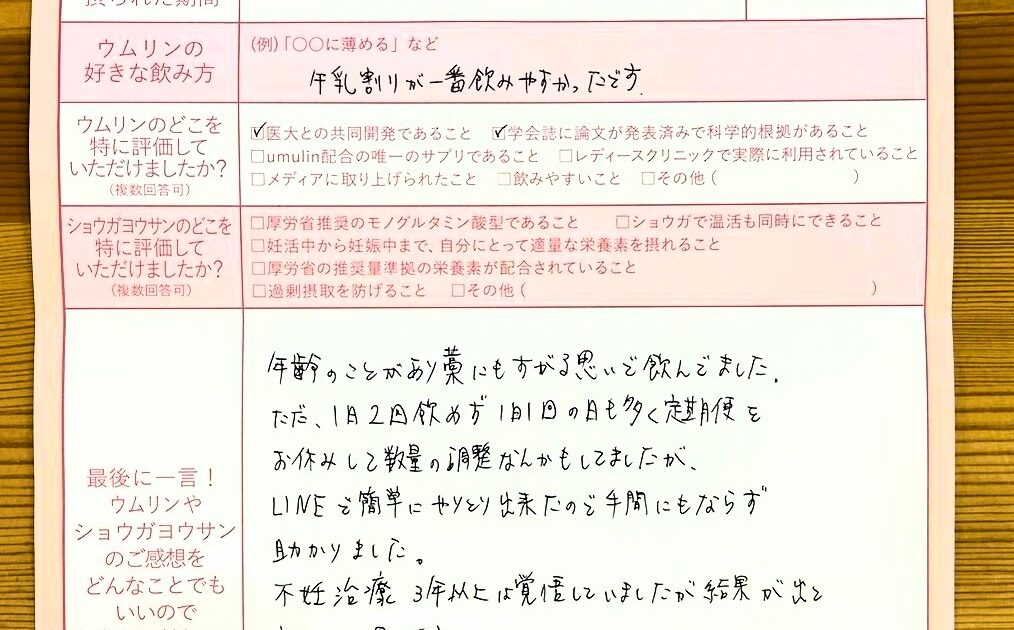 ウムリンの
好きな飲み方
(例)「〇〇に薄める」など
牛乳割りが一番飲みやすかったです.
ウムリンのどこを
特に評価して
いただけましたか?
(複数回答可)
☑医大との共同開発であること ☑学会誌に論文が発表済みで科学的根拠があること
□umulin配合の唯一のサプリであること □レディースクリニックで実際に利用されていること
□メディアに取り上げられたこと □飲みやすいこと □その他 ( )
ショウガヨウサンのどこを
特に評価して
いただけましたか?
(複数回答可)
□厚労省推奨のモノグルタミン酸型であること □ショウガで温活も同時にできること
□妊活中から妊娠中まで、自分にとって適量な栄養素を摂れること
□厚労省の推奨量準拠の栄養素が配合されていること
□過剰摂取を防げること □その他 ( )
最後に一言!
ウムリンや
ショウガヨウサン
のご感想を
どんなことでも
いいので
年齢のことがあり藁にもすがる思いで飲んでました.
ただ、1日2回飲めず1日1回の日も多く定期便を
お休みして数量の調整なんかもしてましたが、
LINEで簡単にやりとり出来たので手間にもならず
助かりました。
不妊治療3年以上は覚悟していましたが結果が出て